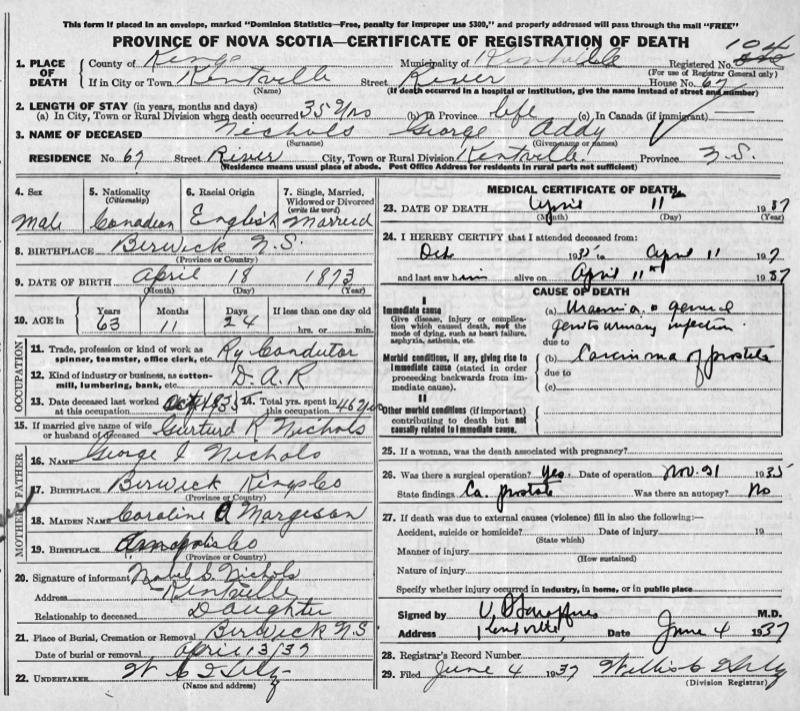 This form if placed in an envelope, marked "Dominion Statistics—Free, penalty for improper use $300," and properly addressed will pass through the mail "FREE"
PROVINCE OF NOVA SCOTIA—CERTIFICATE OF REGISTRATION OF DEATH
1. PLACE OF DEATH County of Kings Municipality of Kentville Registered No. 104
(For use of Registrar General only)
If in City or Town Kentville Street River House No. 67
(Name) (If death occurred in a hospital or institution, give the name instead of street and number)
2. LENGTH OF STAY (in years, months and days)
(a) In City, Town or Rural Division where death occurred 35 yrs (b) In Province life (c) In Canada (if immigrant)
3. NAME OF DECEASED Nichols George Addy
(Surname) (Given name or names)
RESIDENCE No. 67 Street River City, Town or Rural Division Kentville Province N.S.
(Residence means usual place of abode. Post Office Address for residents in rural parts not sufficient)
4. Sex Male
5. Nationality (Citizenship) Canadian
6. Racial Origin English
7. Single, Married, Widowed or Divorced (write the word) Married
8. BIRTHPLACE Berwick N.S.
(Province or Country)
9. DATE OF BIRTH April 18 1873
(Month) (Day) (Year)
10. AGE in Years 63 Months 11 Days 24 If less than one day old hrs. or min.
OCCUPATION
11. Trade, profession or kind of work as spinner, teamster, office clerk, etc. Ry Condutor
12. Kind of industry or business, as cotton-mill, lumbering, bank, etc. D.A.R
13. Date deceased last worked at this occupation Oct 1935 14. Total yrs. spent in this occupation 46 yrs
15. If married give name of wife or husband of deceased Gurturd R Nichols
FATHER
16. NAME George I Nichols
17. BIRTHPLACE Berwick Kings Co
(Province or Country)
MOTHER
18. MAIDEN NAME Caroline A Margeson
19. BIRTHPLACE Co
(Province or Country)
20. Signature of informant S. Nichols
Address Kentville
Relationship to deceased Daughter
21. Place of Burial, Cremation or Removal Berwick N S
Date of burial or removal April 13/37
22. UNDERTAKER W C
(Name and address)
MEDICAL CERTIFICATE OF DEATH
23. DATE OF DEATH April 11th 1937
(Month) (Day) (Year)
24. I HEREBY CERTIFY that I attended deceased from:
193 to April 11 19
and last saw him alive on April 11th 1937
CAUSE OF DEATH
I
Immediate cause
Give disease, injury or complication which caused death, not the mode of dying, such as heart failure, asphyxia, asthenia, etc.
(a) Uraemia general genito urinary infection
due to
Morbid conditions, if any, giving rise to immediate cause (stated in order proceeding backwards from immediate cause).
(b) Carcinoma of prostate
due to
(c)
II
Other morbid conditions (if important) contributing to death but not causally related to immediate cause.
25. If a woman, was the death associated with pregnancy?
26. Was there a surgical operation? Yes. Date of operation Nov. 21 1935
State findings Ca. prostate Was there an autopsy? No
27. If death was due to external causes (violence) fill in also the following:—
Accident, suicide or homicide? Date of injury 19
(State which)
Manner of injury
(How sustained)
Nature of injury
Specify whether injury occurred in industry, in home, or in public place
Signed by M.D.
Address Kentville Date June 4 1937
28. Registrar's Record Number
29. Filed June 4 1937 Willis C
(Division Registrar)